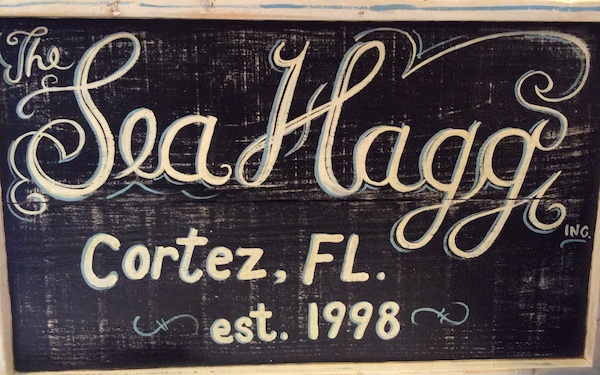 The
Sea Hagg
INC.
Cortez, FL.
est. 1998